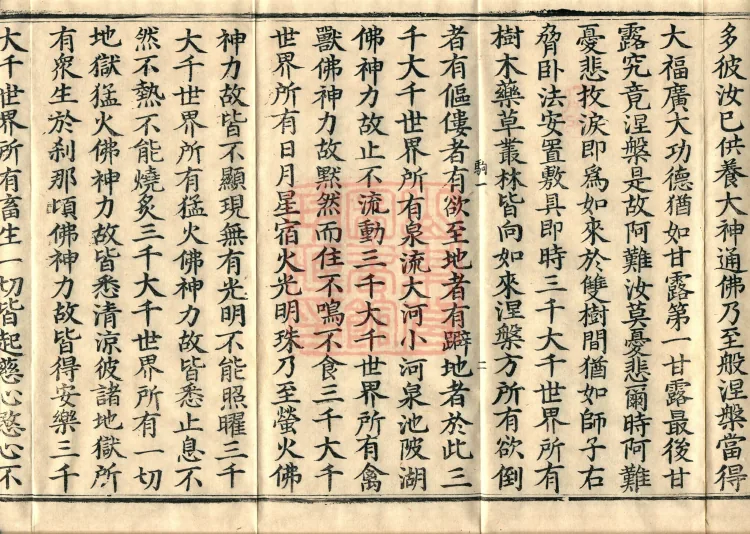 多彼汝已供養大神通佛乃至般涅槃當得
大福廣大功德猶如甘露第一甘露最後甘
露究竟涅槃是故阿難汝莫憂悲爾時阿難
憂悲抆淚即為如來於雙樹間猶如師子右
脅臥法安置敷具即時三千大千世界所有
樹木藥草叢林皆向如來涅槃方所有欲倒
駒一
二
者有傴僂者有欲至地者有躃地者於此三
千大千世界所有泉流大河小河泉池陂湖
佛神力故止不流動三千大千世界所有禽
獸佛神力故默然而住不鳴不食三千大千
世界所有日月星宿火光明珠乃至螢火佛
神力故皆不顯現無有光明不能照曜三千
大千世界所有猛火佛神力故皆悉止息不
然不熱不能燒炙三千大千世界所有一切
地獄猛火佛神力故皆悉清涼彼諸地獄所
有衆生於剎那頃佛神力故皆得安樂三千
大千世界所有畜生一切皆起慈心愍心不